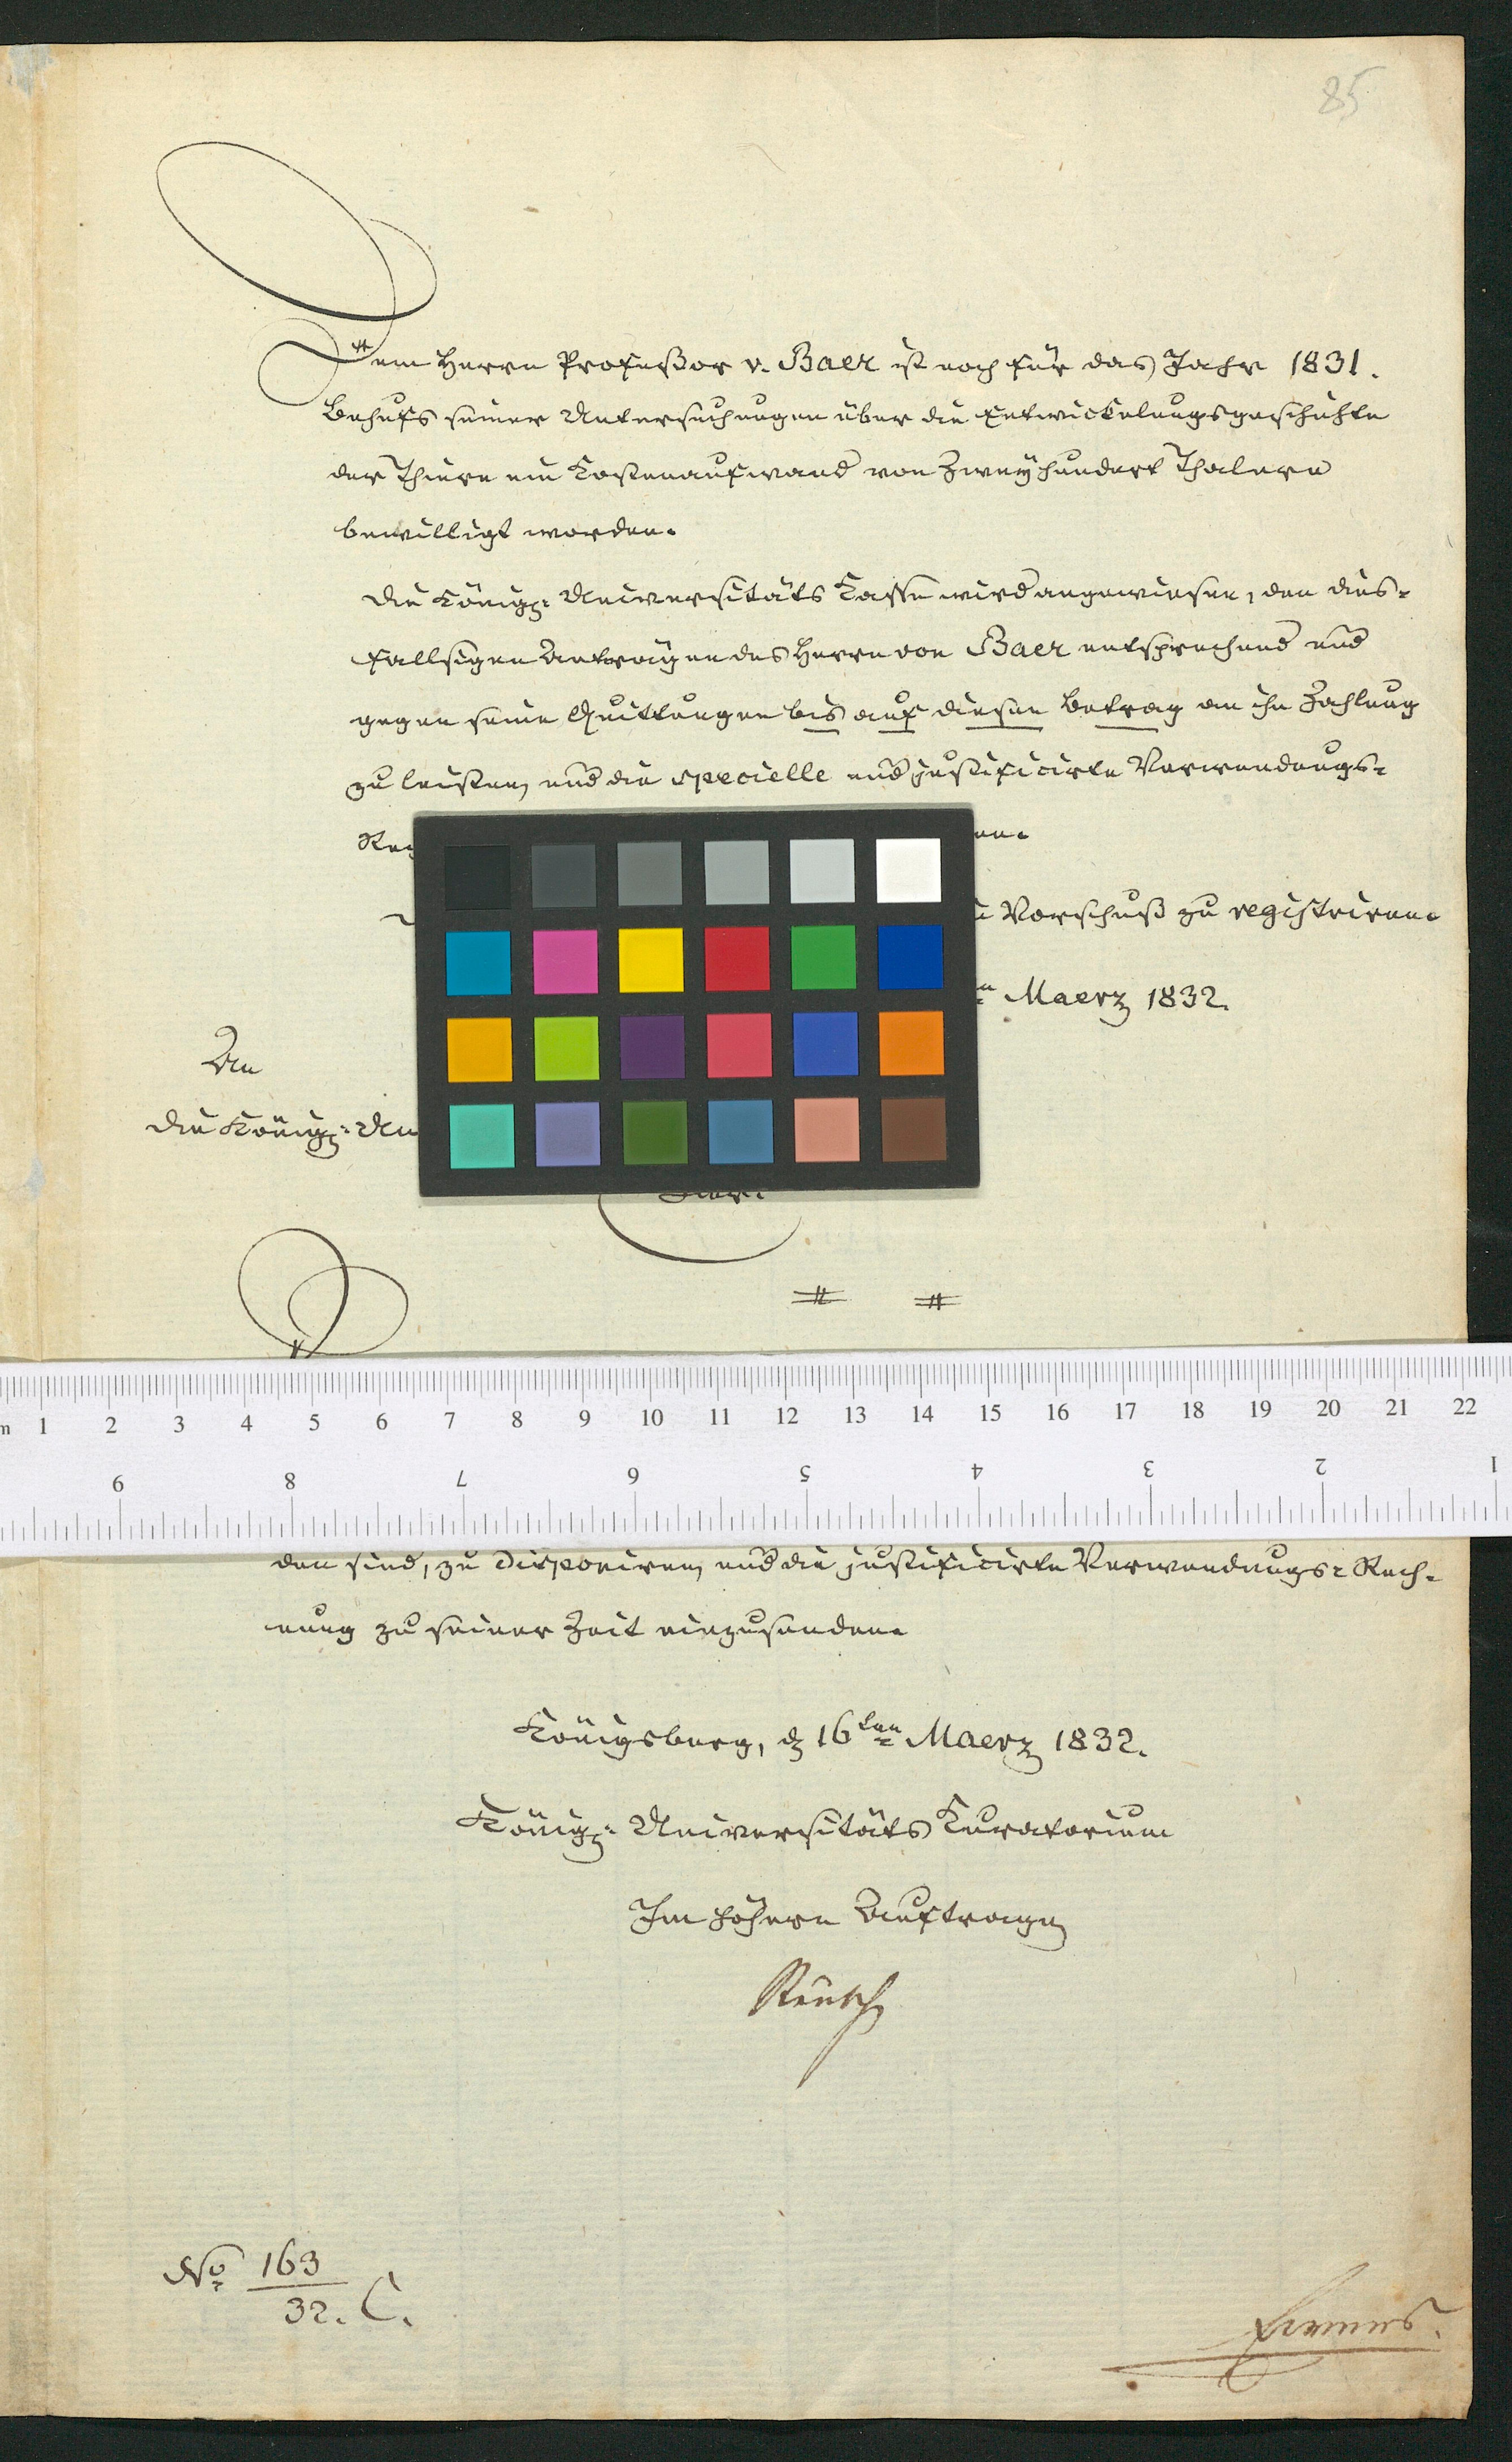 85
Dem Herrn Profeßor v. Baer ist noch für das Jahr 1831.
Behufs seiner Untersuchungen über die Entwickelungsgeschichte
der Thiere ein Kostenaufwand von Zweyhundert Thalern
bewilligt worden.
Die Königl: Universitäts Kasse wird angewiesen, den dies-
fallsigen Anträgen des Herrn von Baer entsprechend und
gegen seine Quittungen bis auf diesen Betrag an ihn Zahlung
zu leisten, und die specielle und justificirte Verwendungs-
Vorschuß zu registriren.
Maerz 1832.
An
die Königl: Un
hier.
m 1 2 3 4 5 6 7 8 9 10 11 12 13 14 15 16 17 18 19 20 21 22
9 8 7 6 5 4 3 2 1
den sind, zu disponiren, und die justificirte Verwendungs-Rech-
nung zu seiner Zeit einzusenden.
Königsberg, d 16ten Maerz 1832.
Königl: Universitäts Kuratorium
Im höhern Auftrage
Reusch
No 163
32. C.